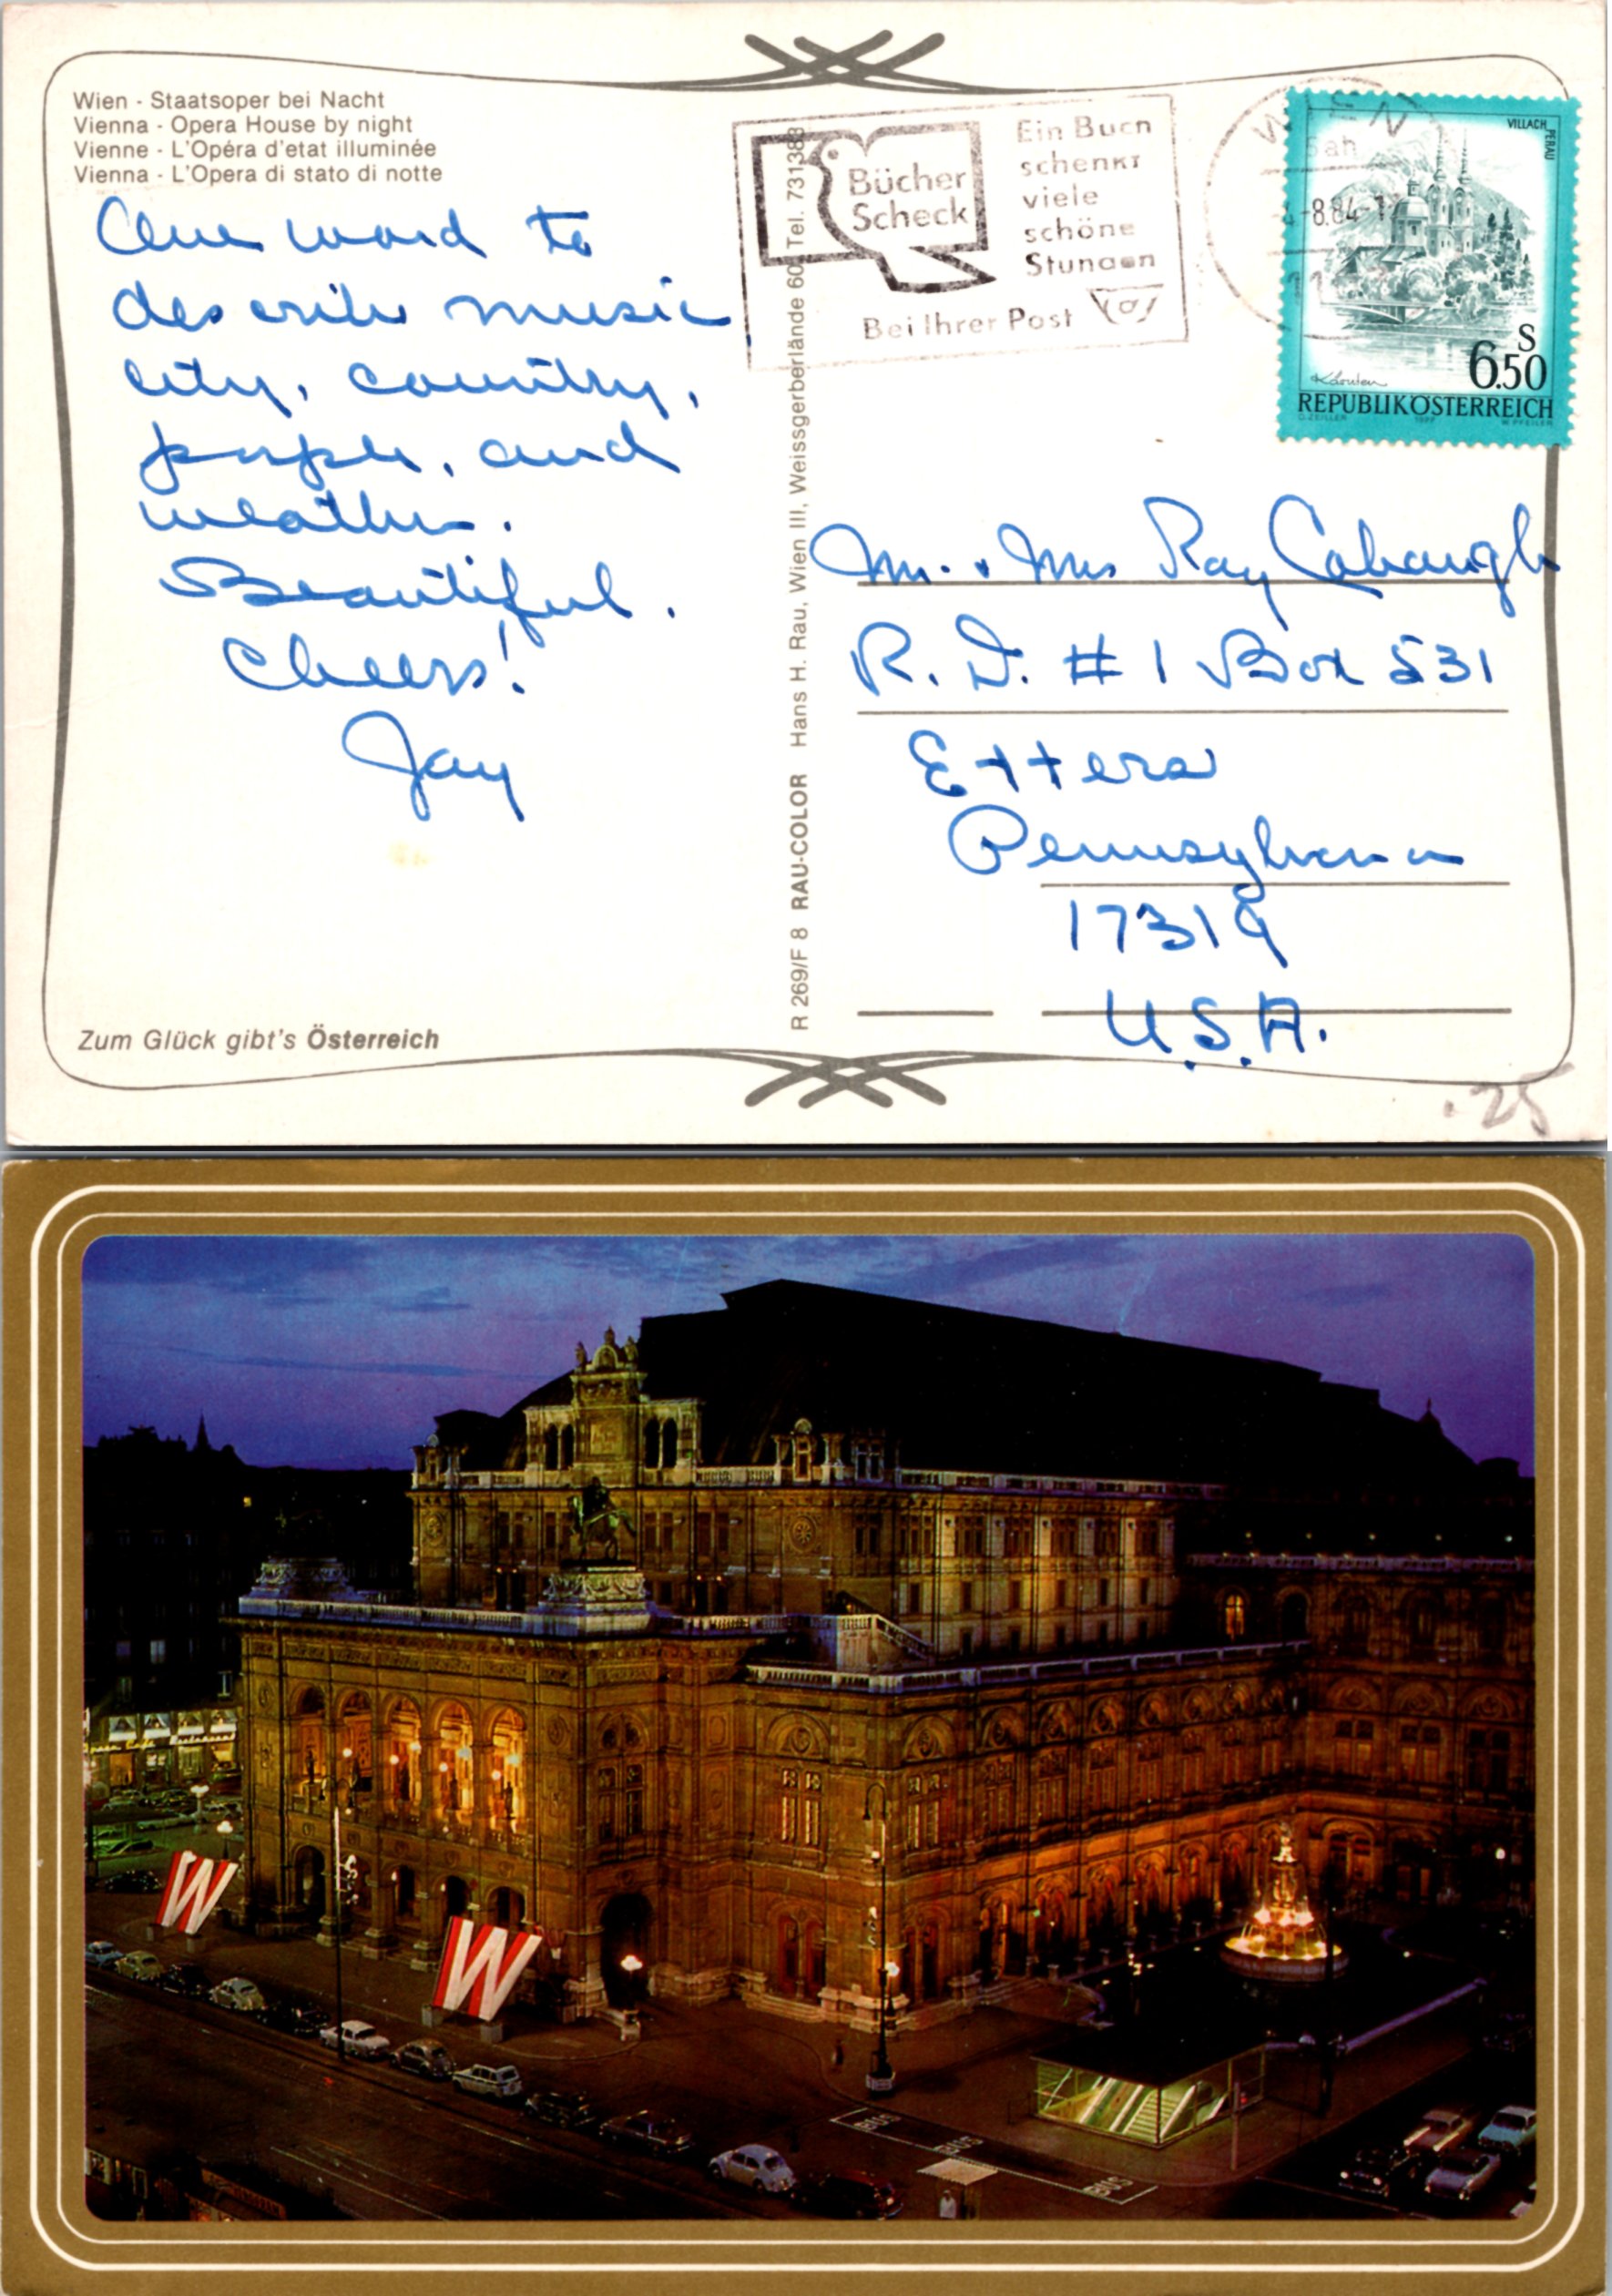 Wien - Staatsoper bei Nacht
Vienna - Opera House by night
Vienne - L'Opéra d'etat illuminée
Vienna - L'Opera di stato di notte
One word to
describe music
city, country,
people, and
weather.
Beautiful.
Cheers!
Jay
Zum Glück gibt's Österreich
R 269/F 8 RAU-COLOR Hans H. Rau, Wien III, Weissgerberlände 60 Tel. 731383
Bücher
Scheck
Ein Buch
schenkt
viele
schöne
Stunden
Bei Ihrer Post
WIEN
-8.84-1
VILLACH
PERAU
S
6.50
Kärnten
REPUBLIK ÖSTERREICH
O. ZEILLER 1977 W. PFEILER
Mr. & Mrs Ray Cabaugh
R. D. #1 Box 531
Etters
Pennsylvania
17319
U.S.A.
.25
W
W
BUS
BUS
BUS